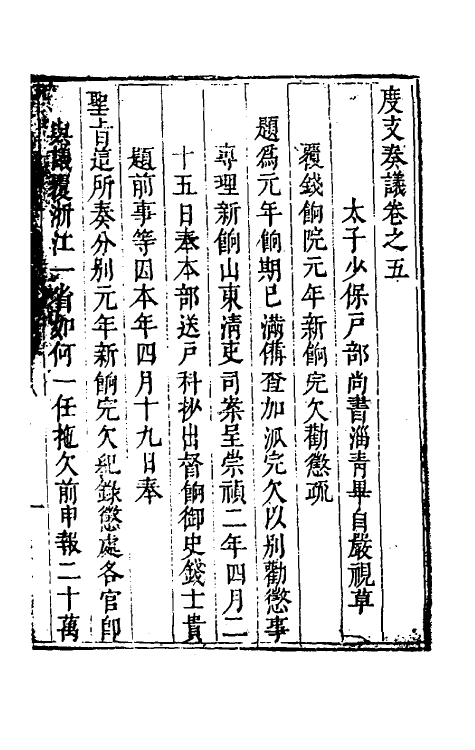 度支奏議卷之五
太子少保戶部尚書淄青畢自嚴視草
覆錢餉院元年新餉完欠勸懲疏
題爲元年餉期已滿備查加派完欠以別勸懲事
專理新餉山東清吏司案呈崇禎二年四月二
十五日奉本部送戶科抄出督餉御史錢士貴
題前事等因本年四月十九日奉
聖旨這所奏分別元年新餉完欠紀錄懲處各官卽
與議覆浙江一省如何一任拖欠前申報二十萬